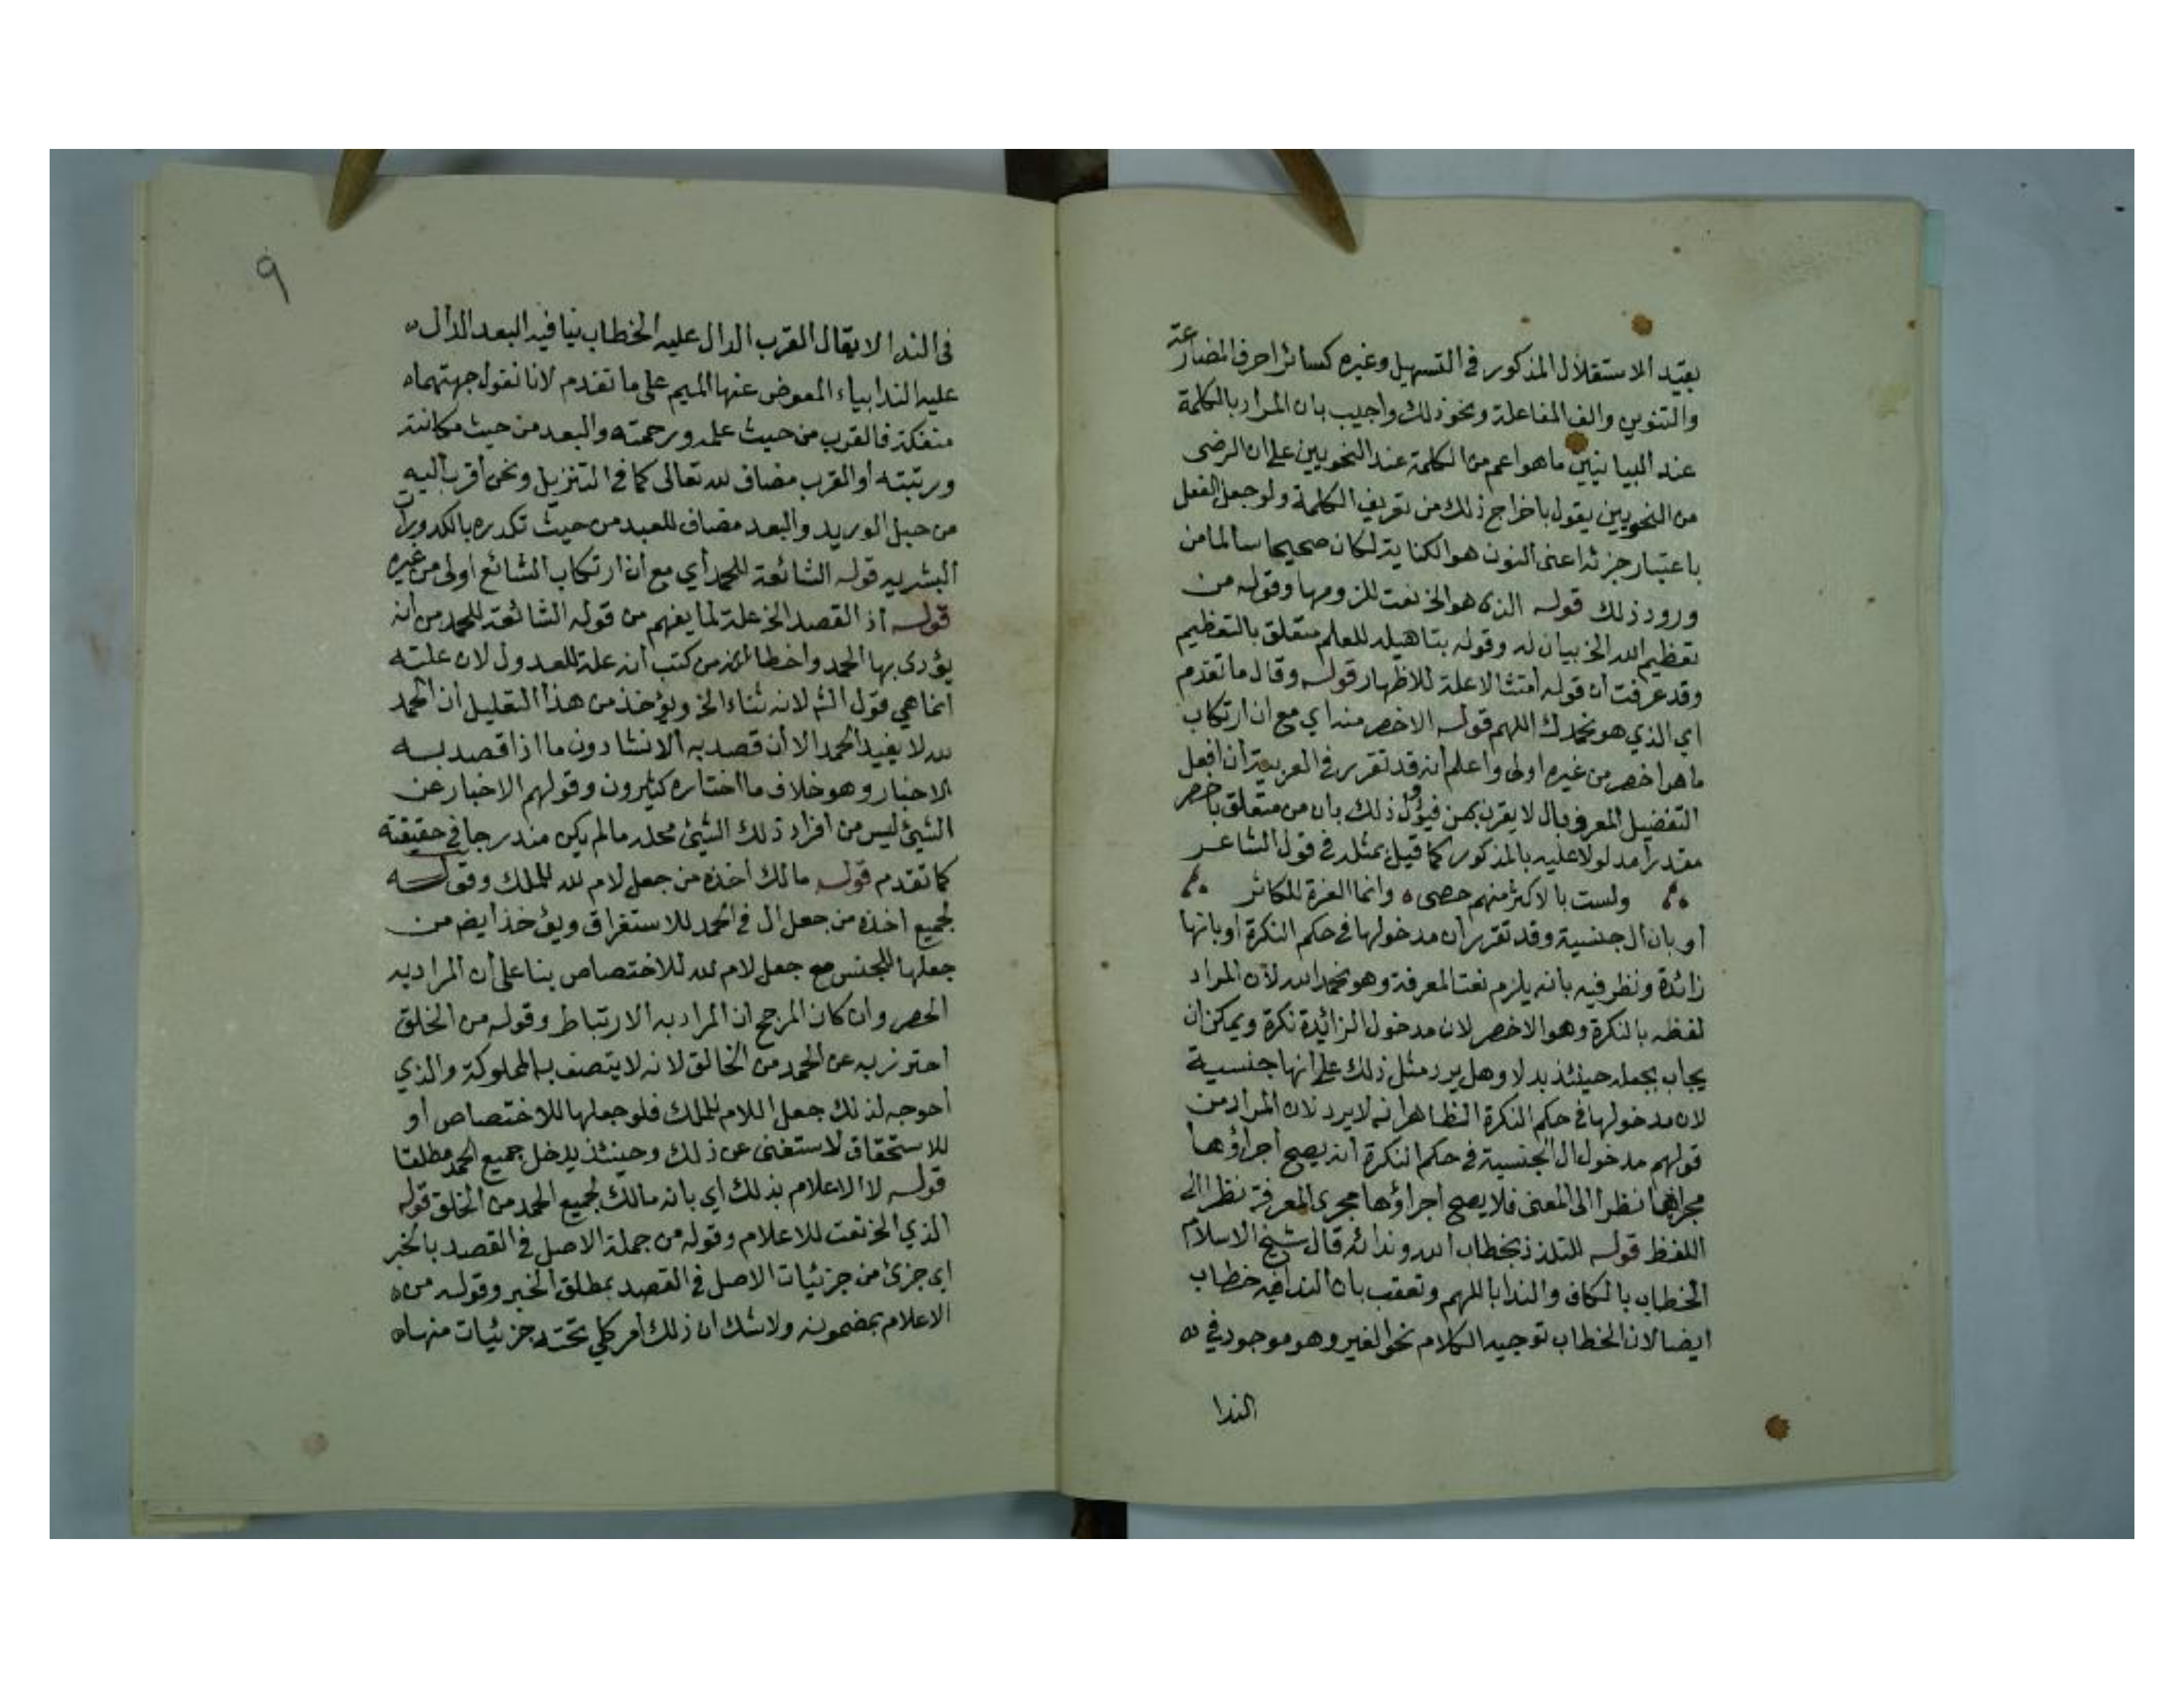 بقيد الاستقلال المذكور في التسهيل وغيره كسائر احرف المضارعة
والتنوين والف المفاعلة ونحو ذلك واجيب بان المراد بالكلمة
عند البيانيين ما هو اعم من الكلمة عند النحويين على ان الرضى
من النحويين يقول باخراج ذلك من تعريف الكلمة ولو جعل الفعل
باعتبار جزئه اعنى النون هو الكناية لكان صحيحا سالما من
ورود ذلك قوله الذى هو الخ نعت للزومها وقوله من
تعظيم الله الخ بيان له وقوله بتاهيله للعلم متعلق بالتعظيم
وقد عرفت ان قوله امتثالا علة للاظهار قوله وقال ما تقدم
اي الذي هو نحمدك اللهم قوله الاخصر منه اي مع ان ارتكاب
ما هو اخصر من غيره اولى واعلم انه قد تقرر في العربية ان افعل
التفضيل المعرف بال لا يقرن بمن فيؤول ذلك بان من متعلق باخصر
مقدرا مدلولا عليه بالمذكور كما قيل بمثله في قول الشاعر
ولست بالاكثر منهم حصى ه وانما العزة للكاثر
او بان ال جنسية وقد تقرر ان مدخولها في حكم النكرة او بانها
زائدة ونظر فيه بانه يلزم نعت المعرفة وهو نحمد الله لان المراد
لفظه بالنكرة وهو الاخصر لان مدخول الزائدة نكرة ويمكن ان
يجاب بجعله حينئذ بدلا وهل يرد مثل ذلك على انها جنسية
لان مدخولها في حكم النكرة الظاهر انه لا يرد لان المراد من
قولهم مدخول ال الجنسية في حكم النكرة انه يصح اجراؤها
مجراها نظرا الى المعنى فلا يصح اجراؤها مجرى المعرفة نظرا الى
اللفظ قوله للتلذذ بخطاب الله وندائه قال شيخ الاسلام
الخطاب بالكاف والندا باللهم وتعقب بان الندا فيه خطاب
ايضا لان الخطاب توجيه الكلام نحو الغير وهو موجود في ه
الندا
٩
في الندا لا يقال القرب الدال عليه الخطاب ينافيه البعد الدال ه
عليه الندا بياء المعوض عنها الميم على ما تقدم لانا نقول جهتهما ه
منفكة فالقرب من حيث علمه ورحمته والبعد من حيث مكانته
ورتبته او القرب مضاف لله تعالى كما في التنزيل ونحن أقرب اليه
من حبل الوريد والبعد مضاف للعبد من حيث تكدره بالكدورات
البشريه قوله الشائعة للحمد أي مع أن ارتكاب الشائع أولى من غيره
قوله اذ القصد الخ علة لما يفهم من قوله الشائعة للحمد من انه
يؤدى بها الحمد واخطا من كتب انه علة للعدول لان علته
انما هي قول الش لانه ثناء الخ ويؤخذ من هذا التعليل ان الحمد
لله لا يفيد الحمد الا ان قصد به الانشا دون ما اذا قصد به
الاخبار وهو خلاف ما اختاره كثيرون وقولهم الاخبار عن
الشيئ ليس من افراد ذلك الشيئ محله ما لم يكن مندرجا في حقيقته
كما تقدم قوله مالك اخذه من جعل لام لله للملك وقوله
لجميع اخذه من جعل ال في الحمد للاستغراق ويؤخذ ايضم من
جعلها للجنس مع جعل لام لله للاختصاص بنا على ان المراد به
الحصر وان كان المرجح ان المراد به الارتباط وقوله من الخلق
احترز به عن الحمد من الخالق لانه لا يتصف بالمملوكة والذي
أحوجه لذلك جعل اللام للملك فلو جعلها للاختصاص أو
للاستحقاق لاستغنى عن ذلك وحينئذ يدخل جميع الحمد مطلقا
قوله لا الاعلام بذلك اي بانه مالك لجميع الحمد من الخلق قوله
الذي الخ نعت للاعلام وقوله من جملة الاصل في القصد بالخبر
اى جزئ من جزئيات الاصل في القصد بمطلق الخبر وقوله من ه
الاعلام بمضمونه ولا شك ان ذلك امر كلي تحته جزئيات منها ه